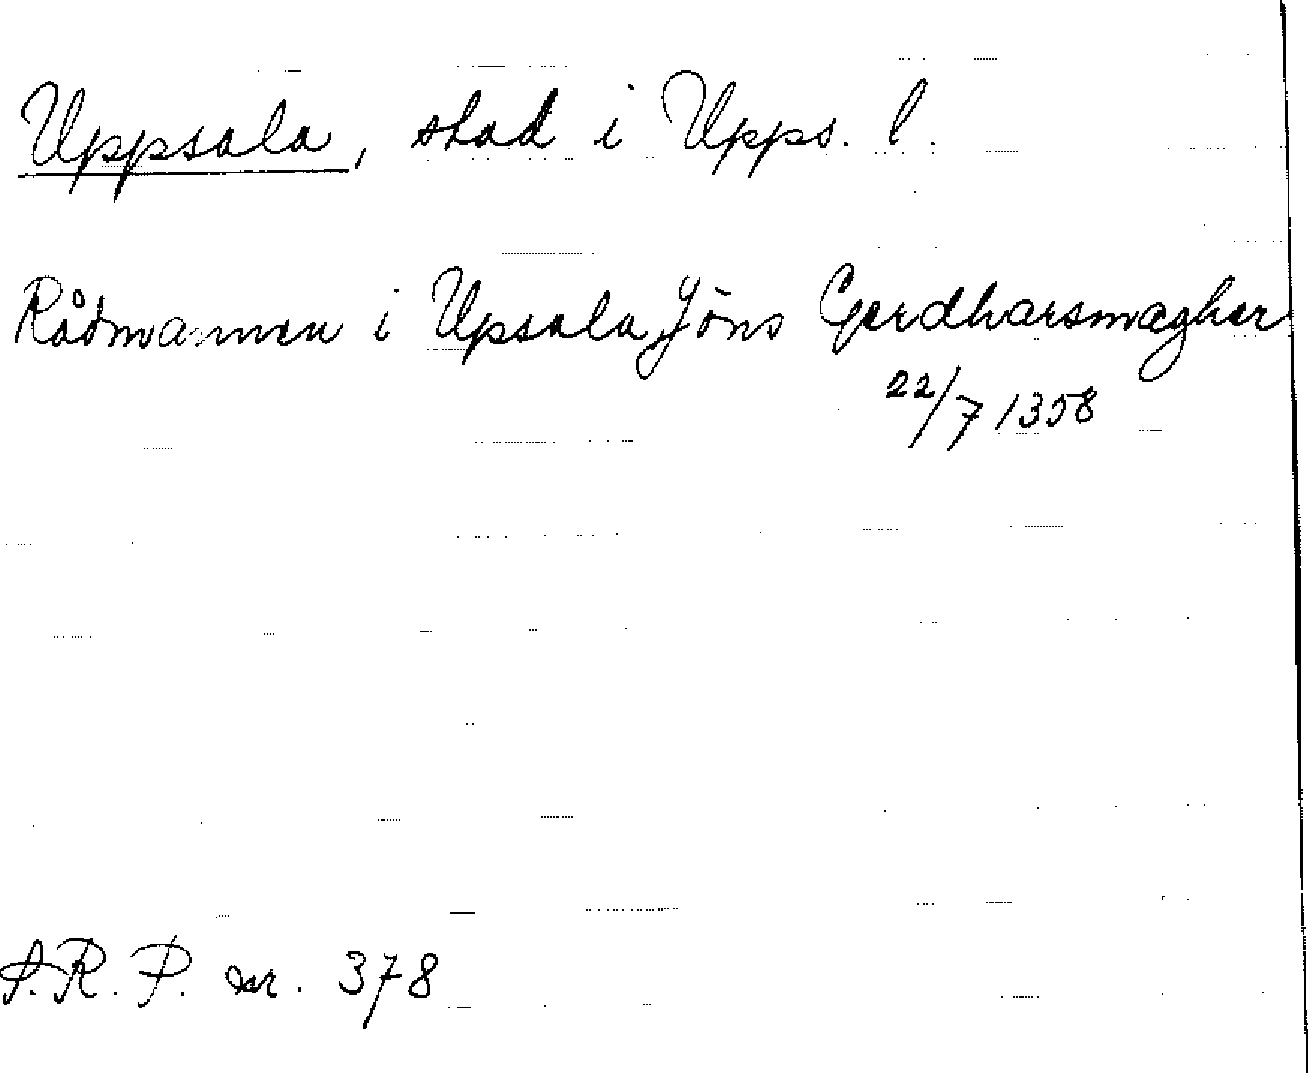 Uppsala, stad i Upps. l.
Rådmannen i Upsala Jöns Gerdharsmagher
22/7 1358
S.R.P. nr. 378